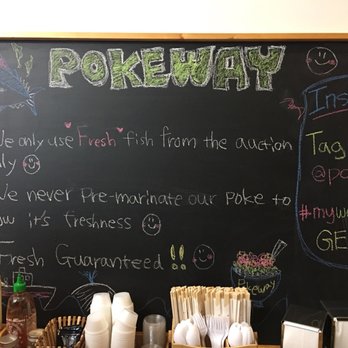 POKEWAY
We only use "Fresh" fish from the auction
We never Pre-marinate our poke to
it's freshness
Fresh Guaranteed!!
Pokeway
Tag